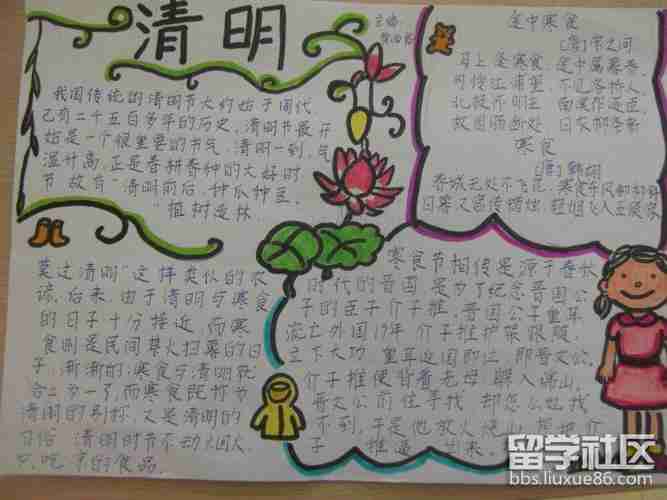 清明
主编
我国传统的清明节大约始于周代
已有二十五百多年的历史，清明节最开
始是一个很重要的节气，清明一到，气
温升高，正是春耕春种的大好时
节，故有"清明前后，种瓜种豆，
植树造林
莫过清明"这样类似的农
谚，后来，由于清明与寒食
的日子十分接近，而寒
食则是民间禁火扫墓的日
子，渐渐的，寒食与清明就
合二为一了，而寒食既称为
清明的别称，又是清明的
习俗，清明时节不动火
只吃 的食品
途中寒食
[唐]宋之问
马上逢寒食，途中属暮春
可怜江浦望，不见洛桥人
北极怀明主，南溟作逐臣
故园肠断处，日夜柳条新
寒食
[唐]韩翃
春城无处不飞花，寒食东风御柳斜
日暮汉宫传蜡烛，轻烟飞入五侯家
寒食节相传是源于春秋
时代的晋国，是为了纪念晋国公
子的臣子介子推，晋国公子重耳
流亡外国19年，介子推护驾跟随，
立下大功，重耳返国即位，即晋文公，
介子推便背着老母，躲入绵山，
晋文公前往寻找，却怎么也找
不到，于是他放火烧山，
子推逼出来
留学社区
bbs.liuxue86.com